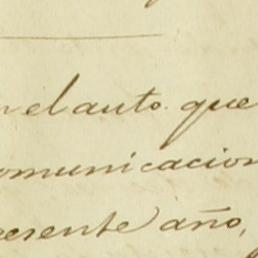 n el auto que
omunicacion
resente año,